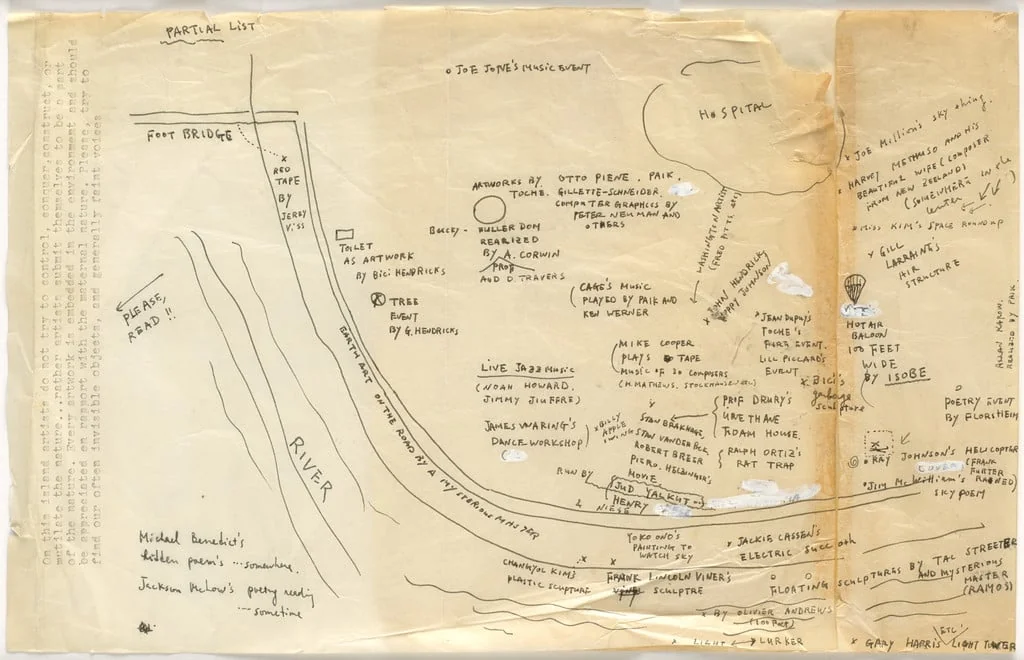 PARTIAL LIST
On this island artists do not try to control, conquer, construct, or
mutilate the nature...rather artist submit themselves to be a part
of the nature. Every artwork is embedded in the environment and should
be appreciated en rapport with the external nature. Please, try to
find our often invisible objects, and generally faint voices
PLEASE,
READ !!
FOOT BRIDGE
RED
TAPE
BY
JERRY
TOILET
AS ARTWORK
BY BICI HENDRICKS
TREE
EVENT
BY G. HENDRICKS
EARTH ART ON THE ROAD BY A MYSTERIOUS MASTER
RIVER
Michael Benedict's
hidden poem's ... somewhere.
Jackson McLow's poetry reading
... sometime
JOE JONE'S MUSIC EVENT
HOSPITAL
ARTWORKS BY OTTO PIENE. PAIK.
TOCHE. GILLETTE-SCHNEIDER.
COMPUTER GRAPHICS BY
PETER NEUMAN AND
OTHERS
BUCKY- FULLER DOM
REARIZED
BY A. CORWIN
PROF
AND D TRAVERS
CAGE'S MUSIC
PLAYED BY PAIK AND
KEN WERNER
MIKE COOPER
PLAYS TAPE
MUSIC OF 30 COMPOSERS
LIVE JAZZ MUSIC
(NOAH HOWARD,
JIMMY JIUFFRE)
JAMES WARING'S
DANCE WORKSHOP
BILLY
APPLE
SWING
STAN BRAKHAGE,
STAN VANDERBEEK,
ROBERT BREER
PIERO. HELICZER'S
MOVIE
RUN BY
JUD YALKUT
HENRY
NIESE
PROF DRURY'S
TUDAM HOUSE.
RALPH ORTIZ'S
RAT TRAP
WASHINGTON ARTIST
JOHN HENDRICKS
POPPY JOHNSON
JEAN DUPUY'S
TOCHE'S
EVENT.
LILL PICCARD'S
EVENT
BICI'S
garbage
sculpture
JOE Million's sky thing.
HARVEY METHUSO AND HIS
BEAUTIFUL WIFE (COMPOSER
FROM NEW ZEELAND)
(SOMEWHERE in the
MISS KIM'S SPACE ROUNDUP
GILL
LARRAINE'S
AIR
STRUCTURE
HOT AIR
BALOON
100 FEET
WIDE
BY ISOBE
ALLAN KAPROW.
REALIZED BY PAIK.
POETRY EVENT
BY FLORSHEIM
RAY JOHNSON'S HELICOPTER
EVENT
JIM McWilliam's
SKY POEM
YOKO ONO'S
PAINTING TO
WATCH SKY
JACKIE CASSEN'S
CHANGYOL KIM'S
PLASTIC SCULPTURE
FRANK LINCOLN VINER'S
VINEL SCULPTRE
FLOATING SCULPTURES BY TAL STREETER
AND MYSTERIOUS
MASTER
(RAMOS)
BY OLIVIER ANDREWS
LIGHT LURKER
ETC
GARY HARRIS LIGHT TOWER